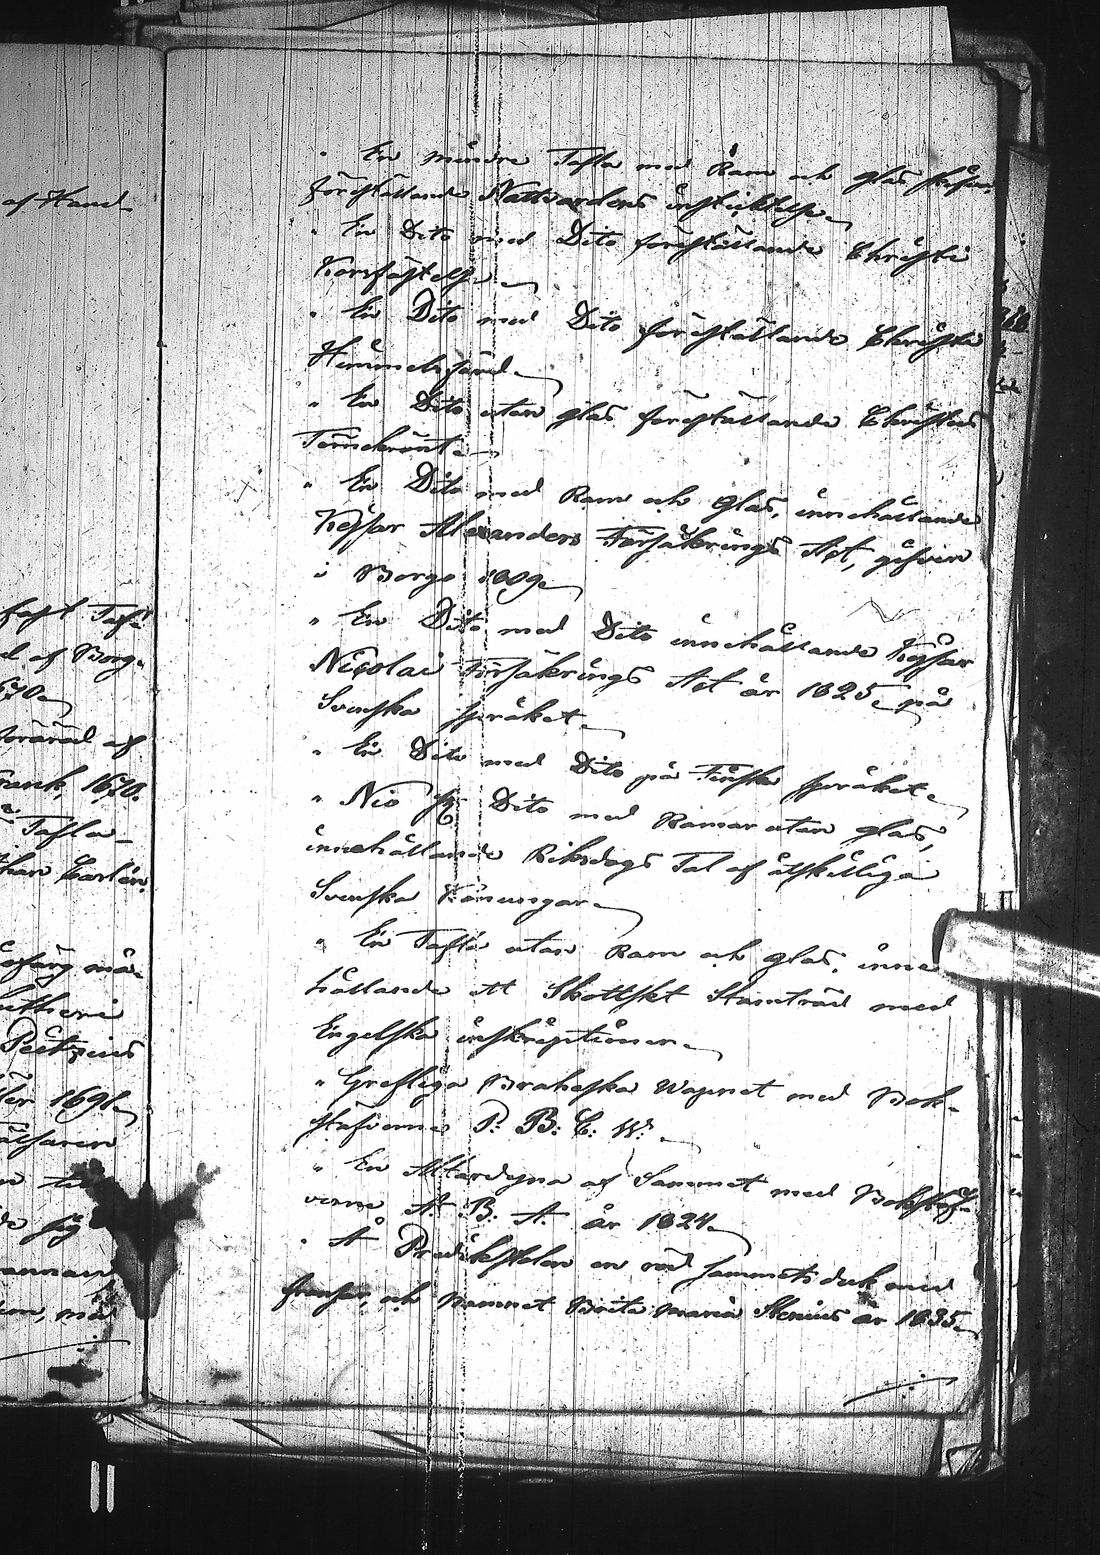 af Hand-
fast Tafl-
d af Borg-
1670
föräräd af
Frank, 1670.
Tafla
than Carlön
ofärg må-
Lutheri
Pictzius
1691
annan
" En mindre Tafla med Ram och glas
föreställande Nattvardens instiktelse
" En Dito med Dito föreställande Christi
Korsfästelse
" En Dito med Dito föreställande Christi
Himmelsfärd
" En Dito utan glas föreställande Christus
Törnekrönt
" En Dito med Ram och Glas, innehållande
Kejsar Alexanders Försäkrings Act, gifven
i Borgo 1809
" En Dito med Dito innehållande Kejsar
Nicolai Försäkrings Act år 1825 på
Svenska språket
" En Dito med Dito på Finska språket
" Nio st Dito med Ramar utan glas,
innehållande Riksdags Tal af åtskilliga
Svenska Konungar
" En Tafla utan Ram och glas, inne
hållande ett Skottskt Stamträd med
Engelska inskriptioner
" Grefliga Braheska Wapnet med Bok-
stäfverne P: B: C: W:
" En Altardyna af Sammet med Bokstäf-
verne A. B. A. år 1824
" Å Predikstolen en röd sammets duk med
fransar, och namnet Brita Maria Stenius år 1835
11